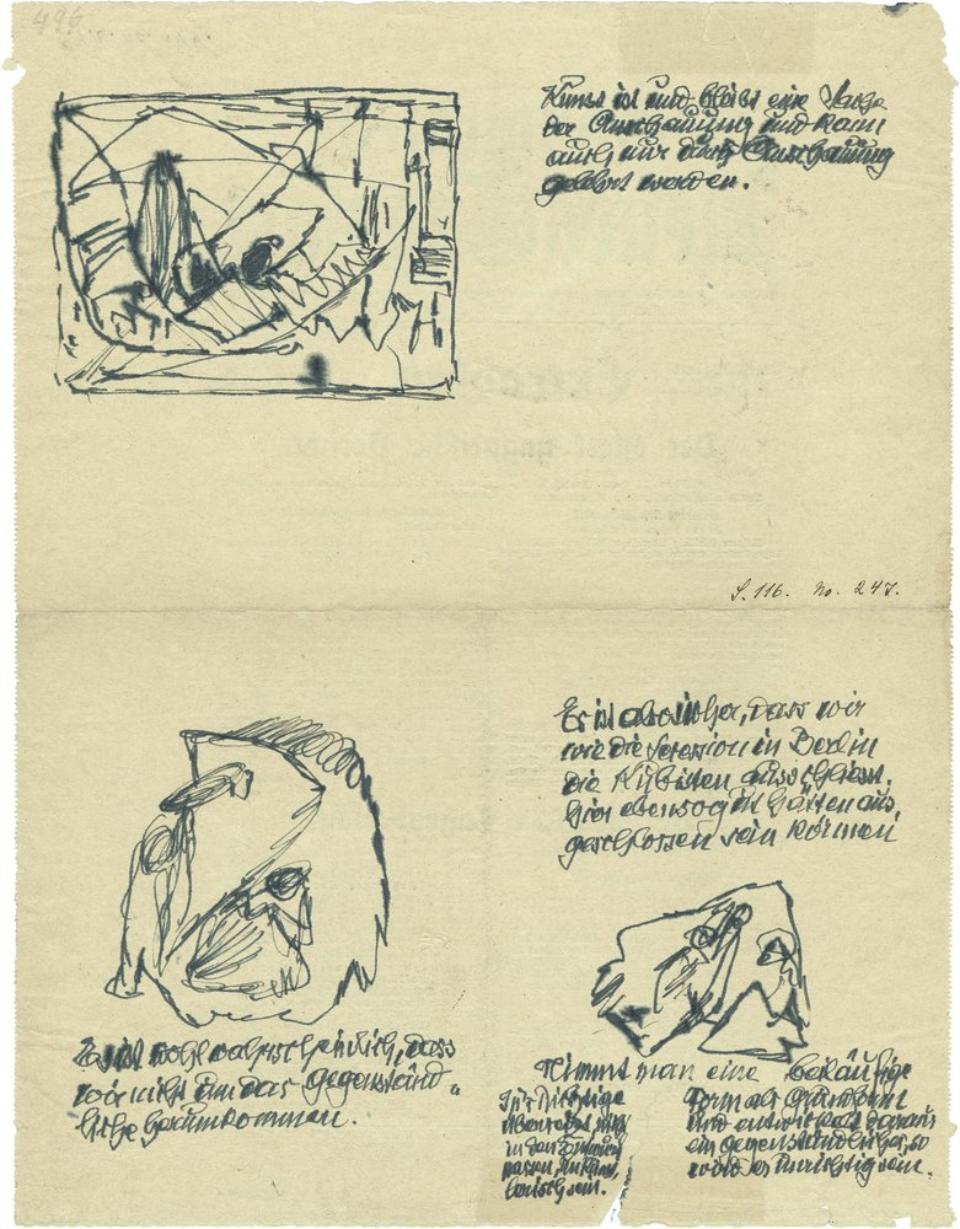 496
Kunst ist und bleibt eine Sache
der Anschauung und kann
auch nur durch Anschauung
gelehrt werden.
S. 116. No. 247.
Es ist also sicher, dass wir
wie die Secession in Berlin
die Kubisten ausschliesst.
hier ebensogut hätten aus,
geschlossen sein können
Es ist wohl wahrscheinlich, dass
wir nicht um das gegenständ„
liche herumkommen.
Nimmt man eine beläufige
Form als Grundform
und entwickelt daraus
ein gegenständliches, so
wird es unrichtig sein.
in den